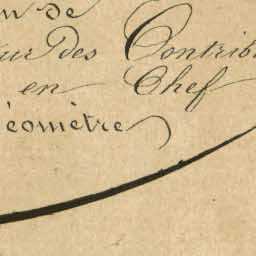 de
des Contrib
en Chef
éomètre